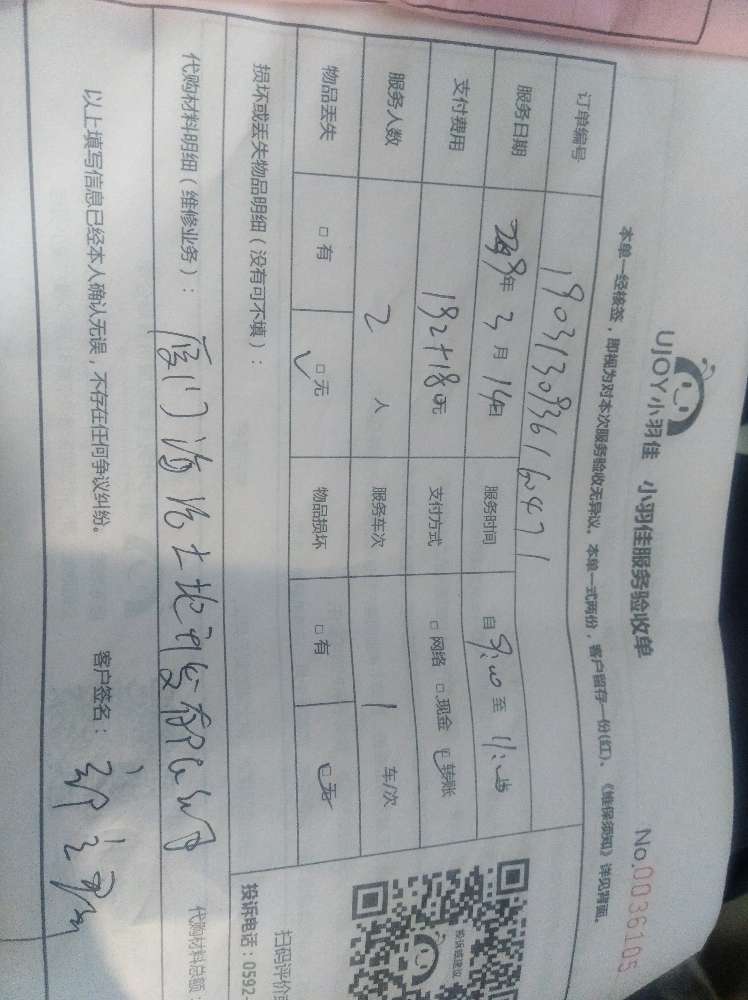 UJOY小羽佳 小羽佳服务验收单
No.0036105
本单一经接签，即视为对本次服务验收无异议。本单一式两份，客户留存一份(红)、《维保须知》详见背面。
订单编号
服务日期 2019年3月14日 服务时间 自9:00至11:15
支付费用 192+180元 支付方式 □网络 □现金 □转账
服务人数 2人 服务车次 1车/次
物品丢失 □有 □无 物品损坏 □有 □无
损坏或丢失物品明细（没有可不填）：
代购材料明细（维修业务）： 厦门海沧土地开发有限公司
代购材料总额：
以上填写信息已经本人确认无误，不存在任何争议纠纷。 客户签名：
投诉建议
扫码评价
投诉电话：0592-